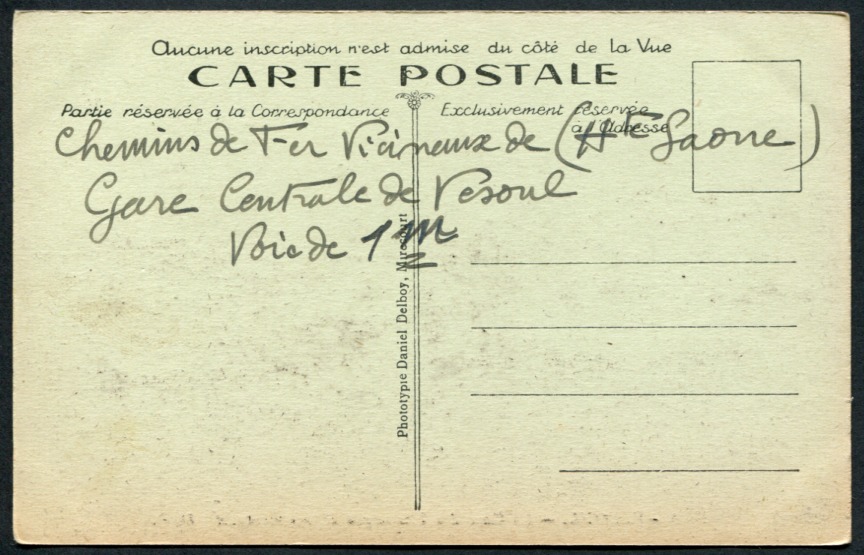 Aucune inscription n'est admise du côté de la Vue
CARTE POSTALE
Partie réservée à la Correspondance
Exclusivement réservée
à l'Adresse
Chemins de Fer Vicinaux de (Hte Saone)
Gare Centrale de Vesoul
Voie de 1m
Phototypie Daniel Delboy, Mirecourt